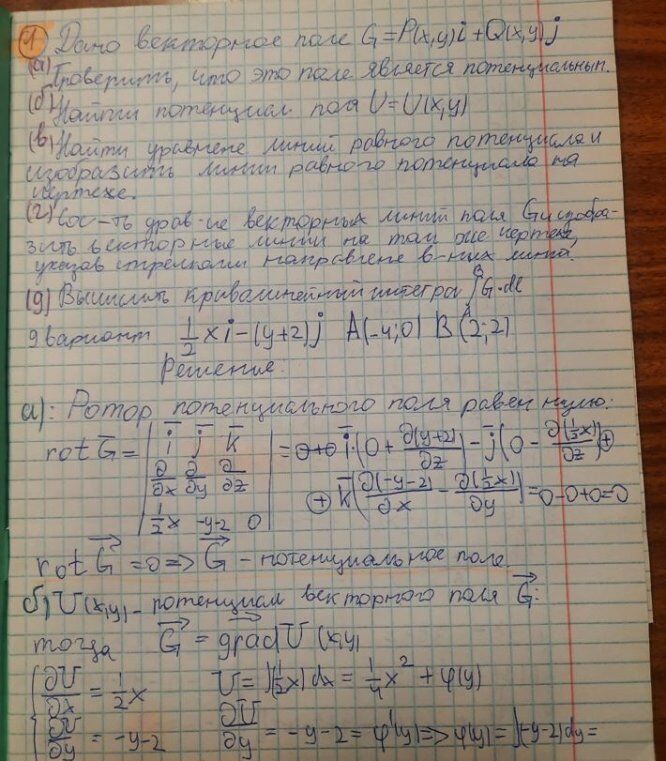 1 Дано векторное поле G=P(x,y)i+Q(x,y)j
(а) Проверить, что это поле является потенциальным.
(б) Найти потенциал поля U=U(x,y)
(в) Найти уравнене линий равного потенциала и
изобразить линии равного потенциала на
чертеже.
(г) Сос-ть урав-ие векторных линий поля G и изобра-
зить векторные линии на том же чертеже,
указав стрелками направлене в-них линий.
(д) Вычислить криволинейный интеграл ∫_A^B G·dl
9 вариант 1/2 xi-(y+2)j A(-4;0) B(2;2)
Решение:
а): Ротор потенциального поля равен нулю:
rot G̅ = | i̅ j̅ k̅ | = i̅·(0+∂(y+2)/∂z)-j̅(0-∂(1/2x)/∂z)+
∂/∂x ∂/∂y ∂/∂z + k̅(∂(-y-2)/∂x-∂(1/2x)/∂y)=0-0+0=0
1/2x -y-2 0
rot G⃗ =0=> G⃗ - потенциальное поле.
б) U(x,y)- потенциал векторного поля G⃗:
тогда G⃗ = grad U (x,y)
{ ∂U/∂x = 1/2x U=∫(1/2x)dx = 1/4x² + φ(y)
∂U/∂y = -y-2 ∂U/∂y = -y-2 = φ'(y)=> φ(y)=∫(-y-2)dy=